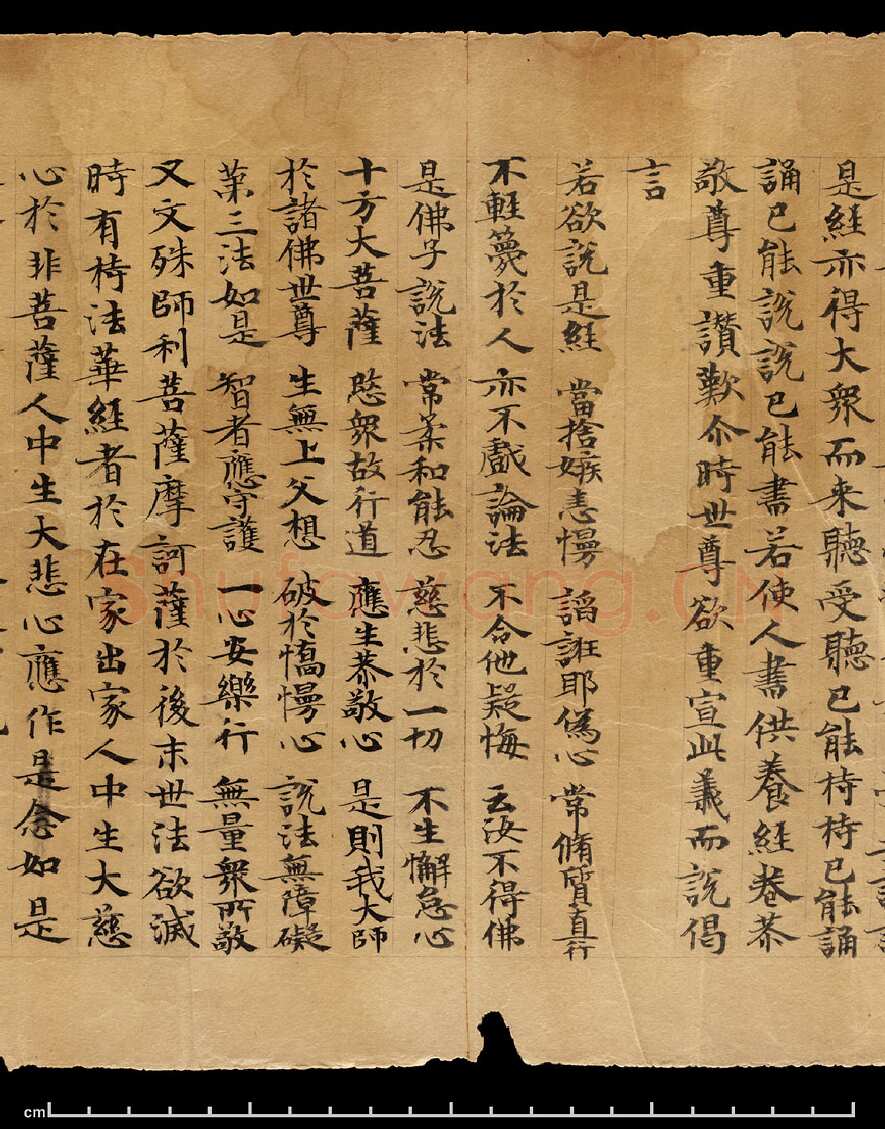 是經亦得大衆而来聽受聽已能持持已能誦
誦已能說說已能書若使人書供養經卷恭
敬尊重讃歎尒時世尊欲重宣此義而說偈
言
若欲說是經 當捨嫉恚慢 諂誑耶僞心 常脩質直行
不輕蔑於人 亦不戲論法 不令他疑悔 云汝不得佛
是佛子說法 常柔和能忍 慈悲於一切 不生懈怠心
十方大菩薩 愍衆故行道 應生恭敬心 是則我大師
於諸佛世尊 生無上父想 破於憍慢心 說法無障礙
苐三法如是 智者應守護 一心安樂行 無量衆所敬
又文殊師利菩薩摩訶薩於後末世法欲滅
時有持法華經者於在家出家人中生大慈
心於非菩薩人中生大悲心應作是念如是
shufawang.cn
cm